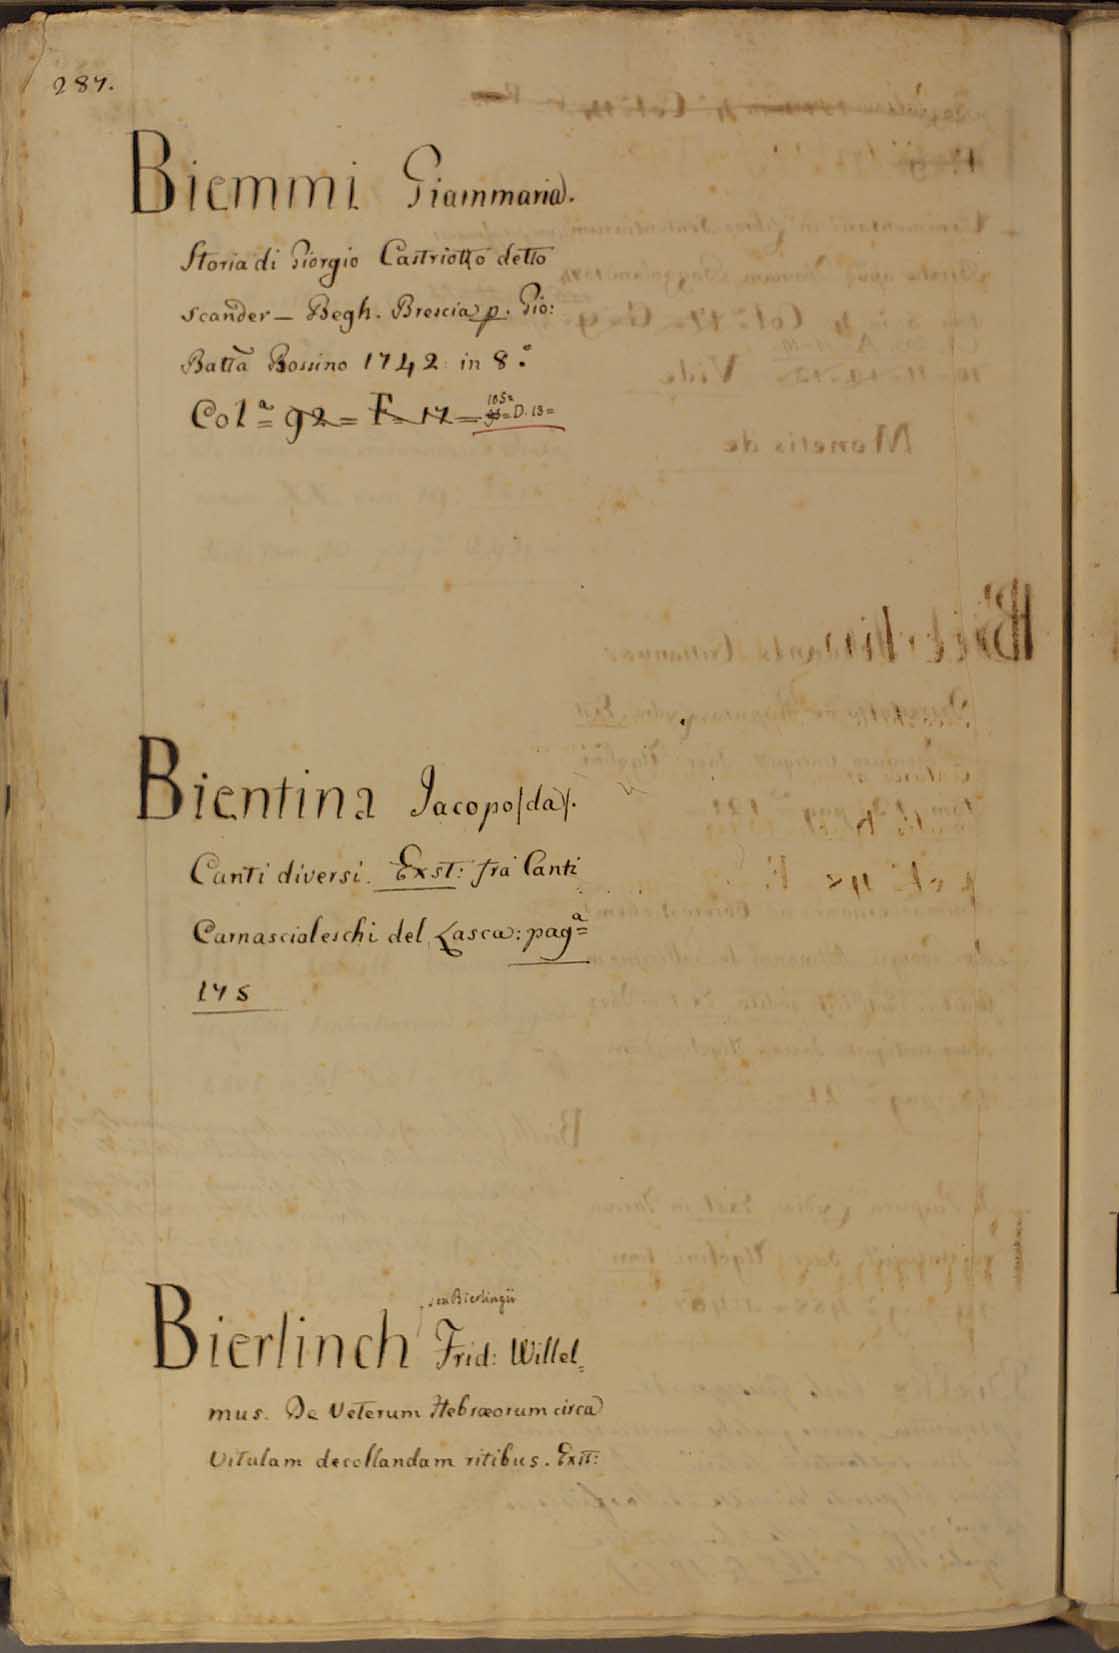 287.
Biemmi Giammaria.
Storia di Giorgio Castriotto detto
Scander - Begh. Brescia p. Gio:
Batta Bossino 1742 in 8.º
Col.ª 92 = F. 17 = D. 13 =
105 =
Bientina Jacopo /da/.
Canti diversi. Exst: fra Canti
Carnascialeschi del Lasca: pagª
175
seu Bierlingii
Bierlinch Frid: Willel=
mus. De Veterum Hebræorum circa
Vitulam decollandam ritibus. Exst: